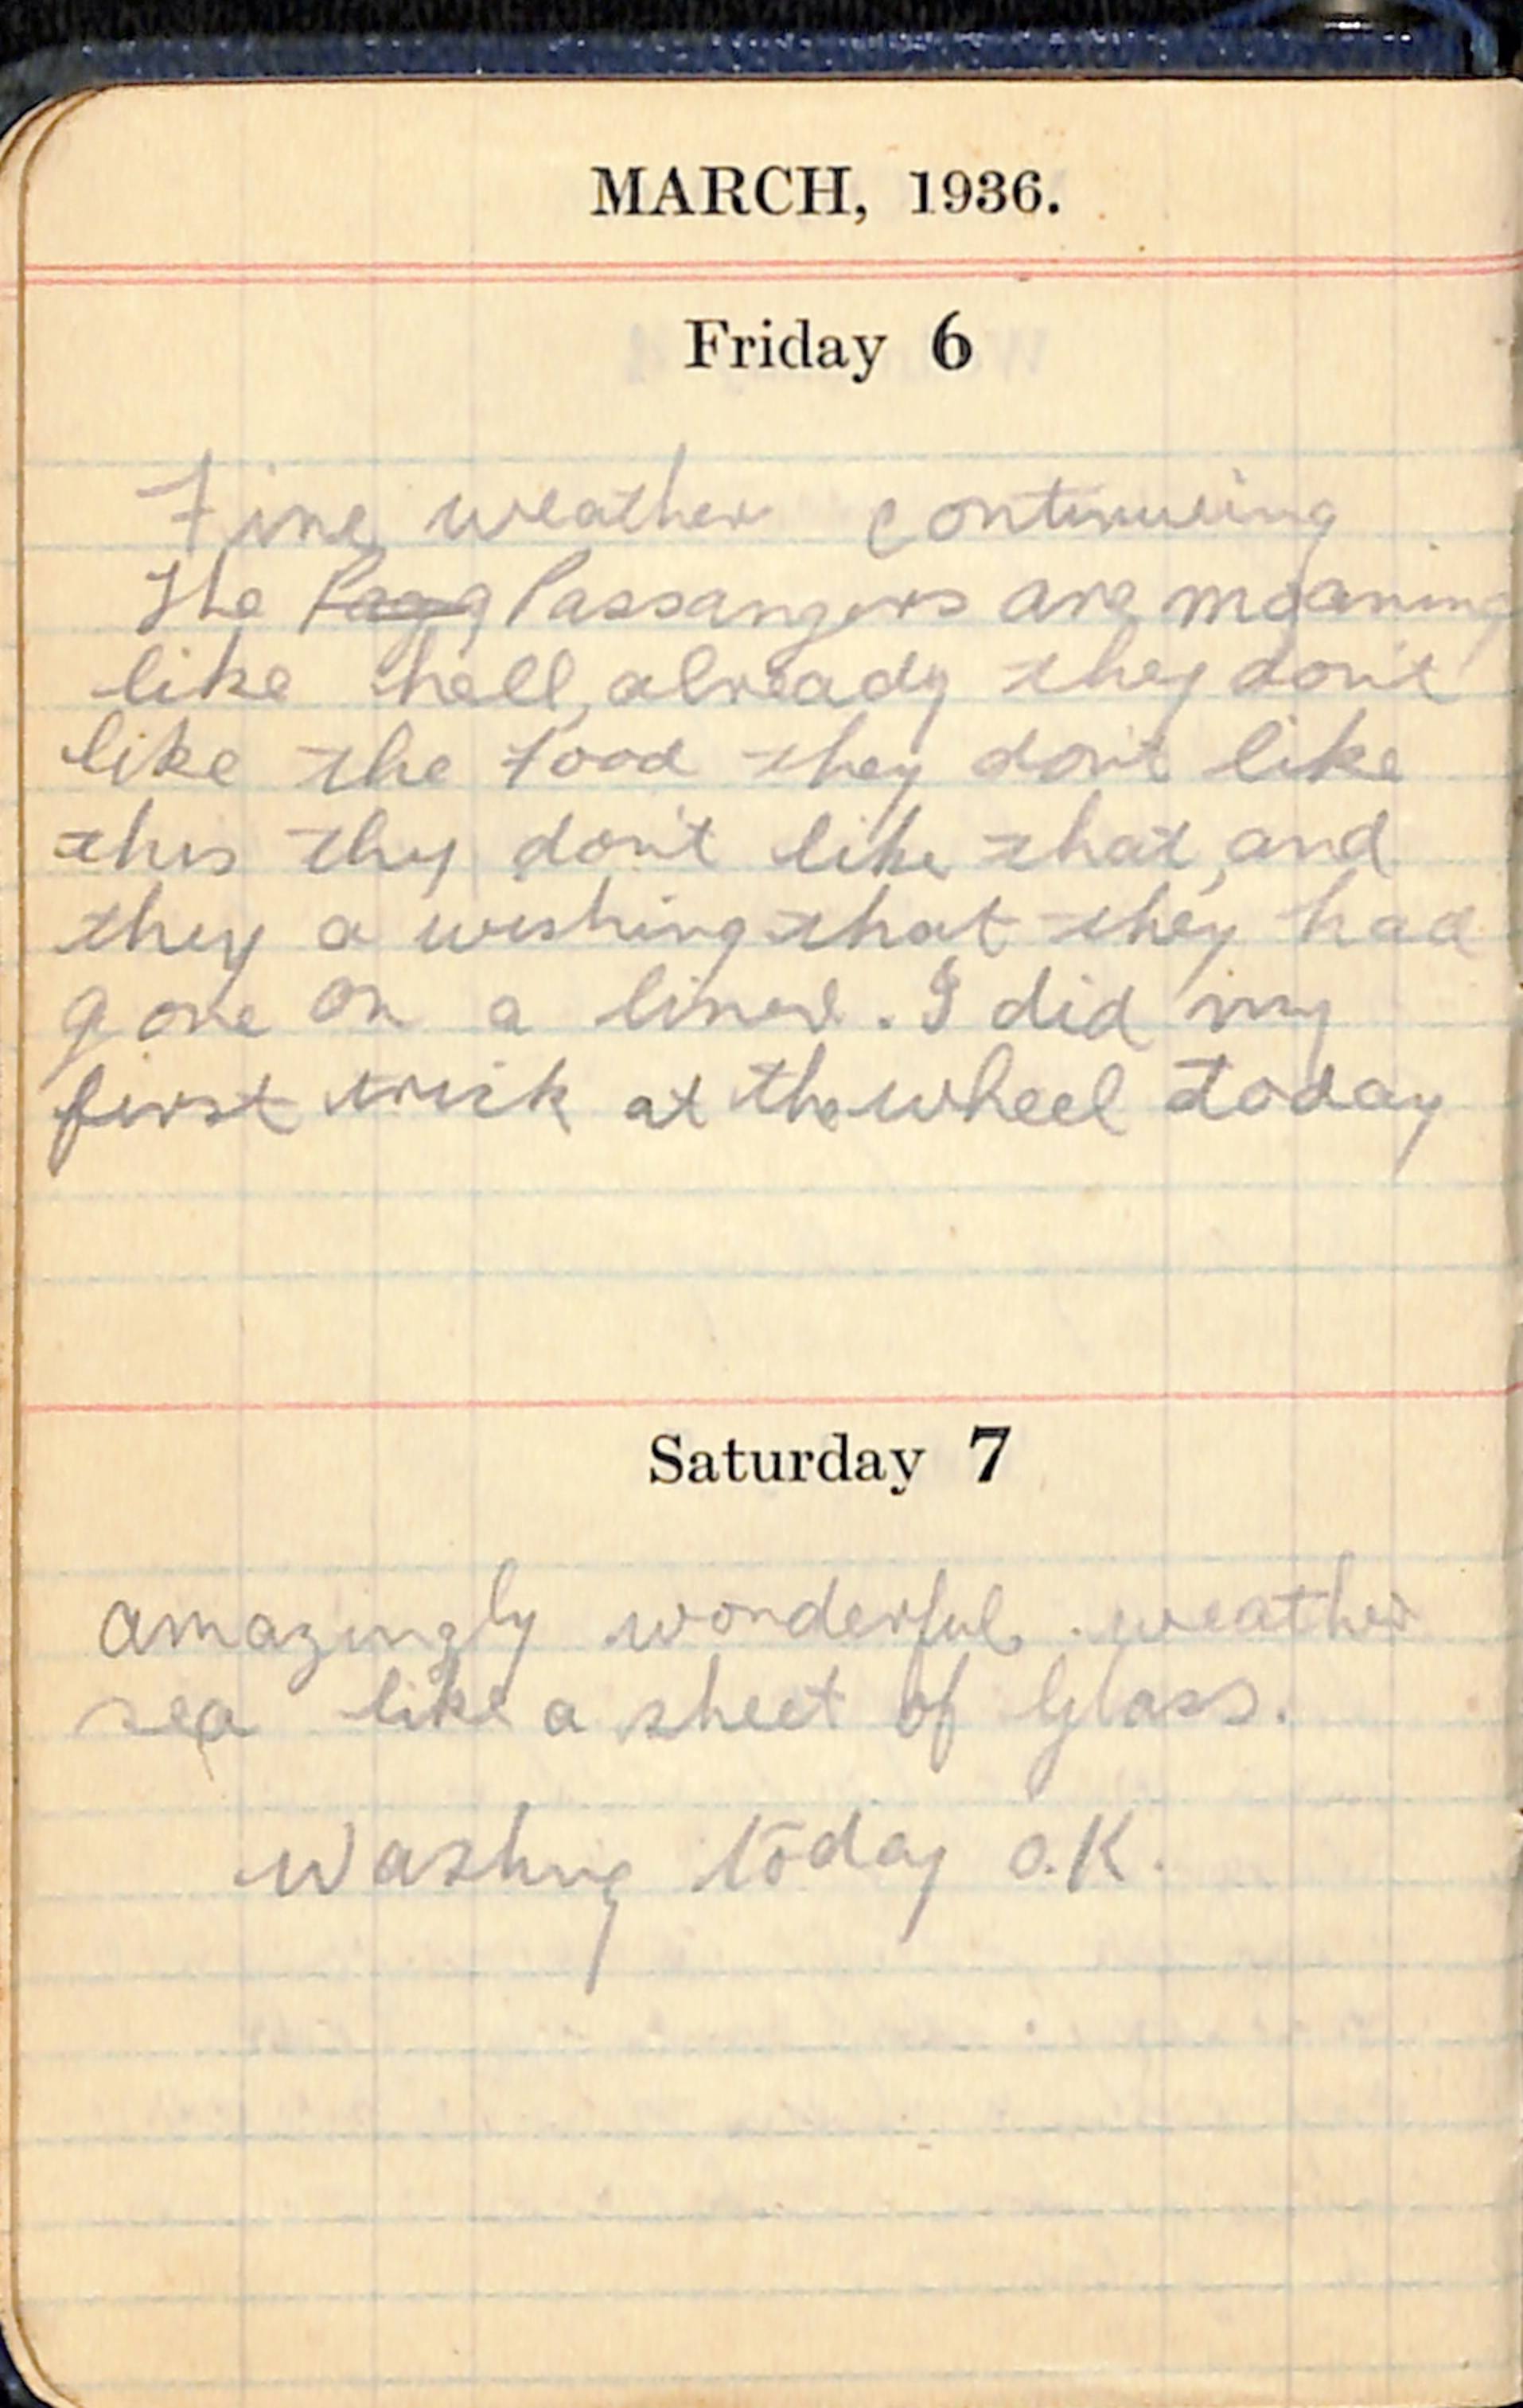 MARCH, 1936.
Friday 6
Fine weather continuing
The Pagg Passangers are moaning
like hell, already they don't
like the food they don't like
this thy don't like that, and
they a wishing that they had
gone on a liner. I did my
first trick at the wheel today
Saturday 7
amazingly wonderful weather
sea like a sheet of Glass.
Washing today O.K.